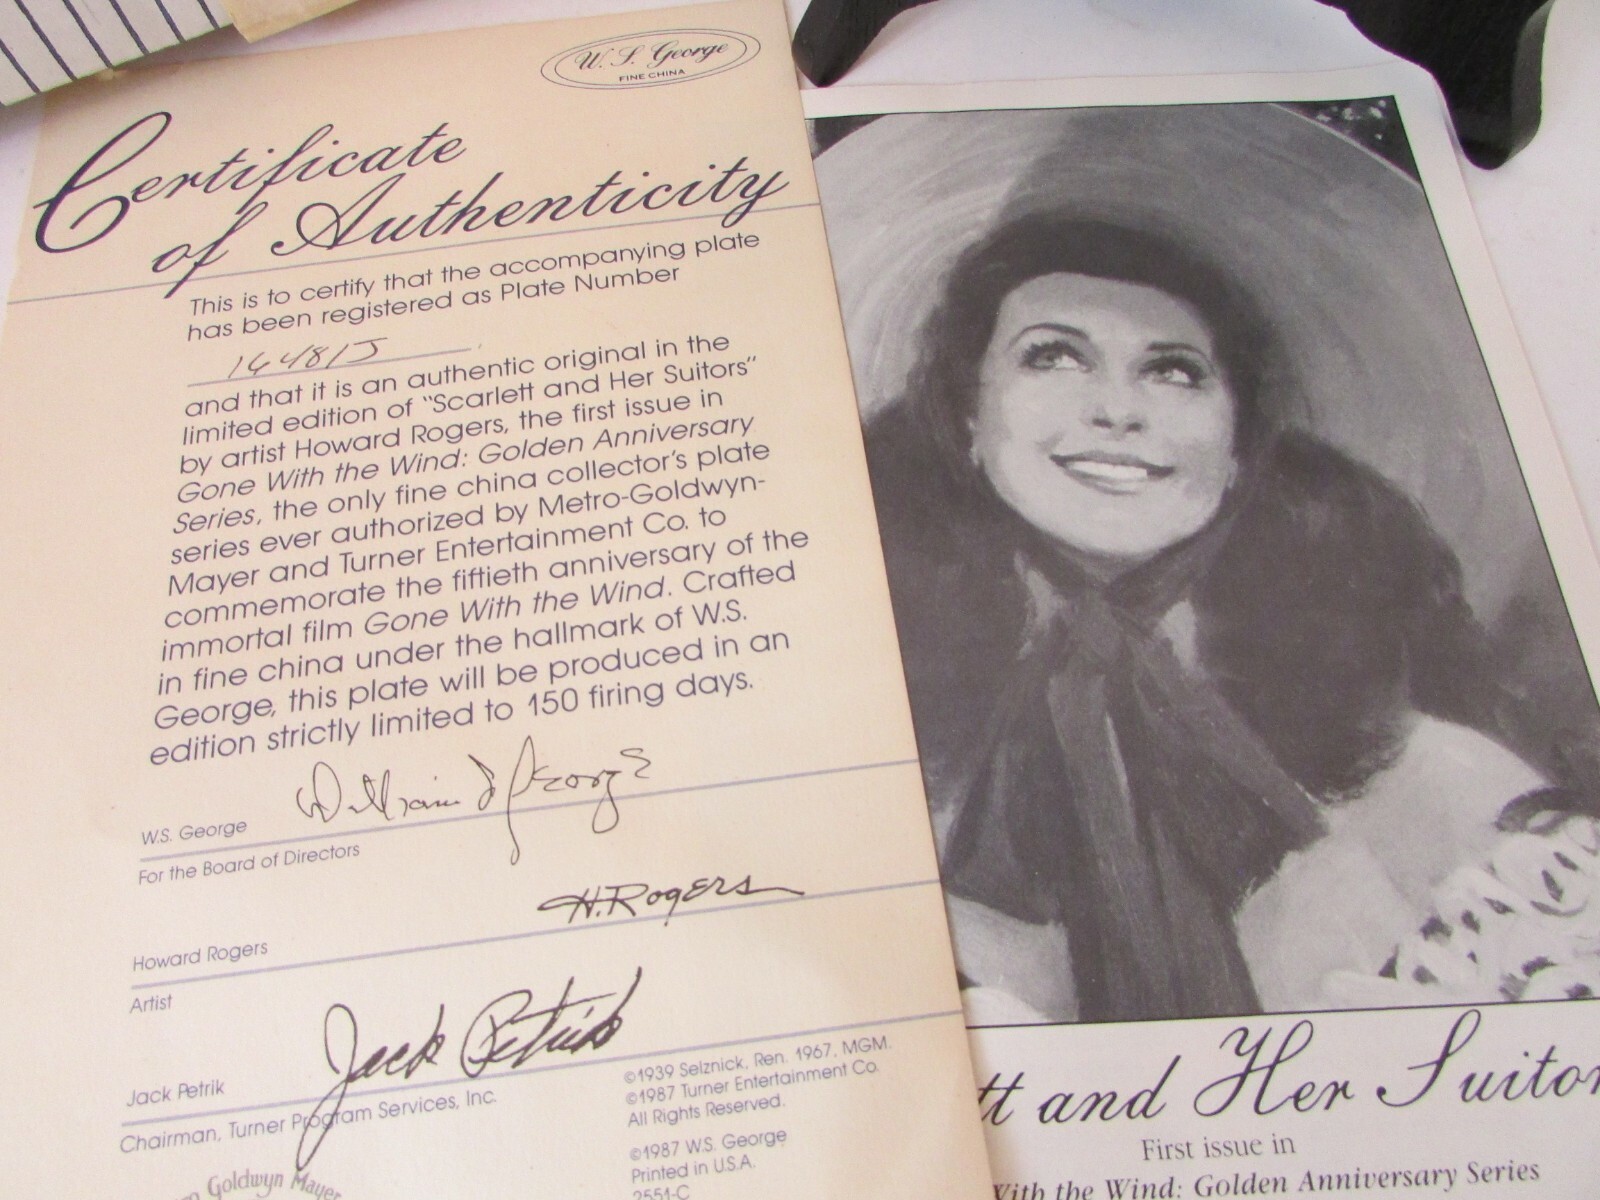 W. S. George
FINE CHINA
Certificate
of Authenticity
This is to certify that the accompanying plate
has been registered as Plate Number
16481J
and that it is an authentic original in the
limited edition of "Scarlett and Her Suitors"
by artist Howard Rogers, the first issue in
Gone With the Wind: Golden Anniversary
Series, the only fine china collector's plate
series ever authorized by Metro-Goldwyn-
Mayer and Turner Entertainment Co. to
commemorate the fiftieth anniversary of the
immortal film Gone With the Wind. Crafted
in fine china under the hallmark of W.S.
George, this plate will be produced in an
edition strictly limited to 150 firing days.
William S George
W.S. George
For the Board of Directors
H. Rogers
Howard Rogers
Artist
Jack Petrik
Jack Petrik
Chairman, Turner Program Services, Inc.
©1939 Selznick, Ren. 1967, MGM.
©1987 Turner Entertainment Co.
All Rights Reserved.
©1987 W.S. George
Printed in U.S.A.
2551-C
Goldwyn Mayer
tt and Her Suitor
First issue in
With the Wind: Golden Anniversary Series